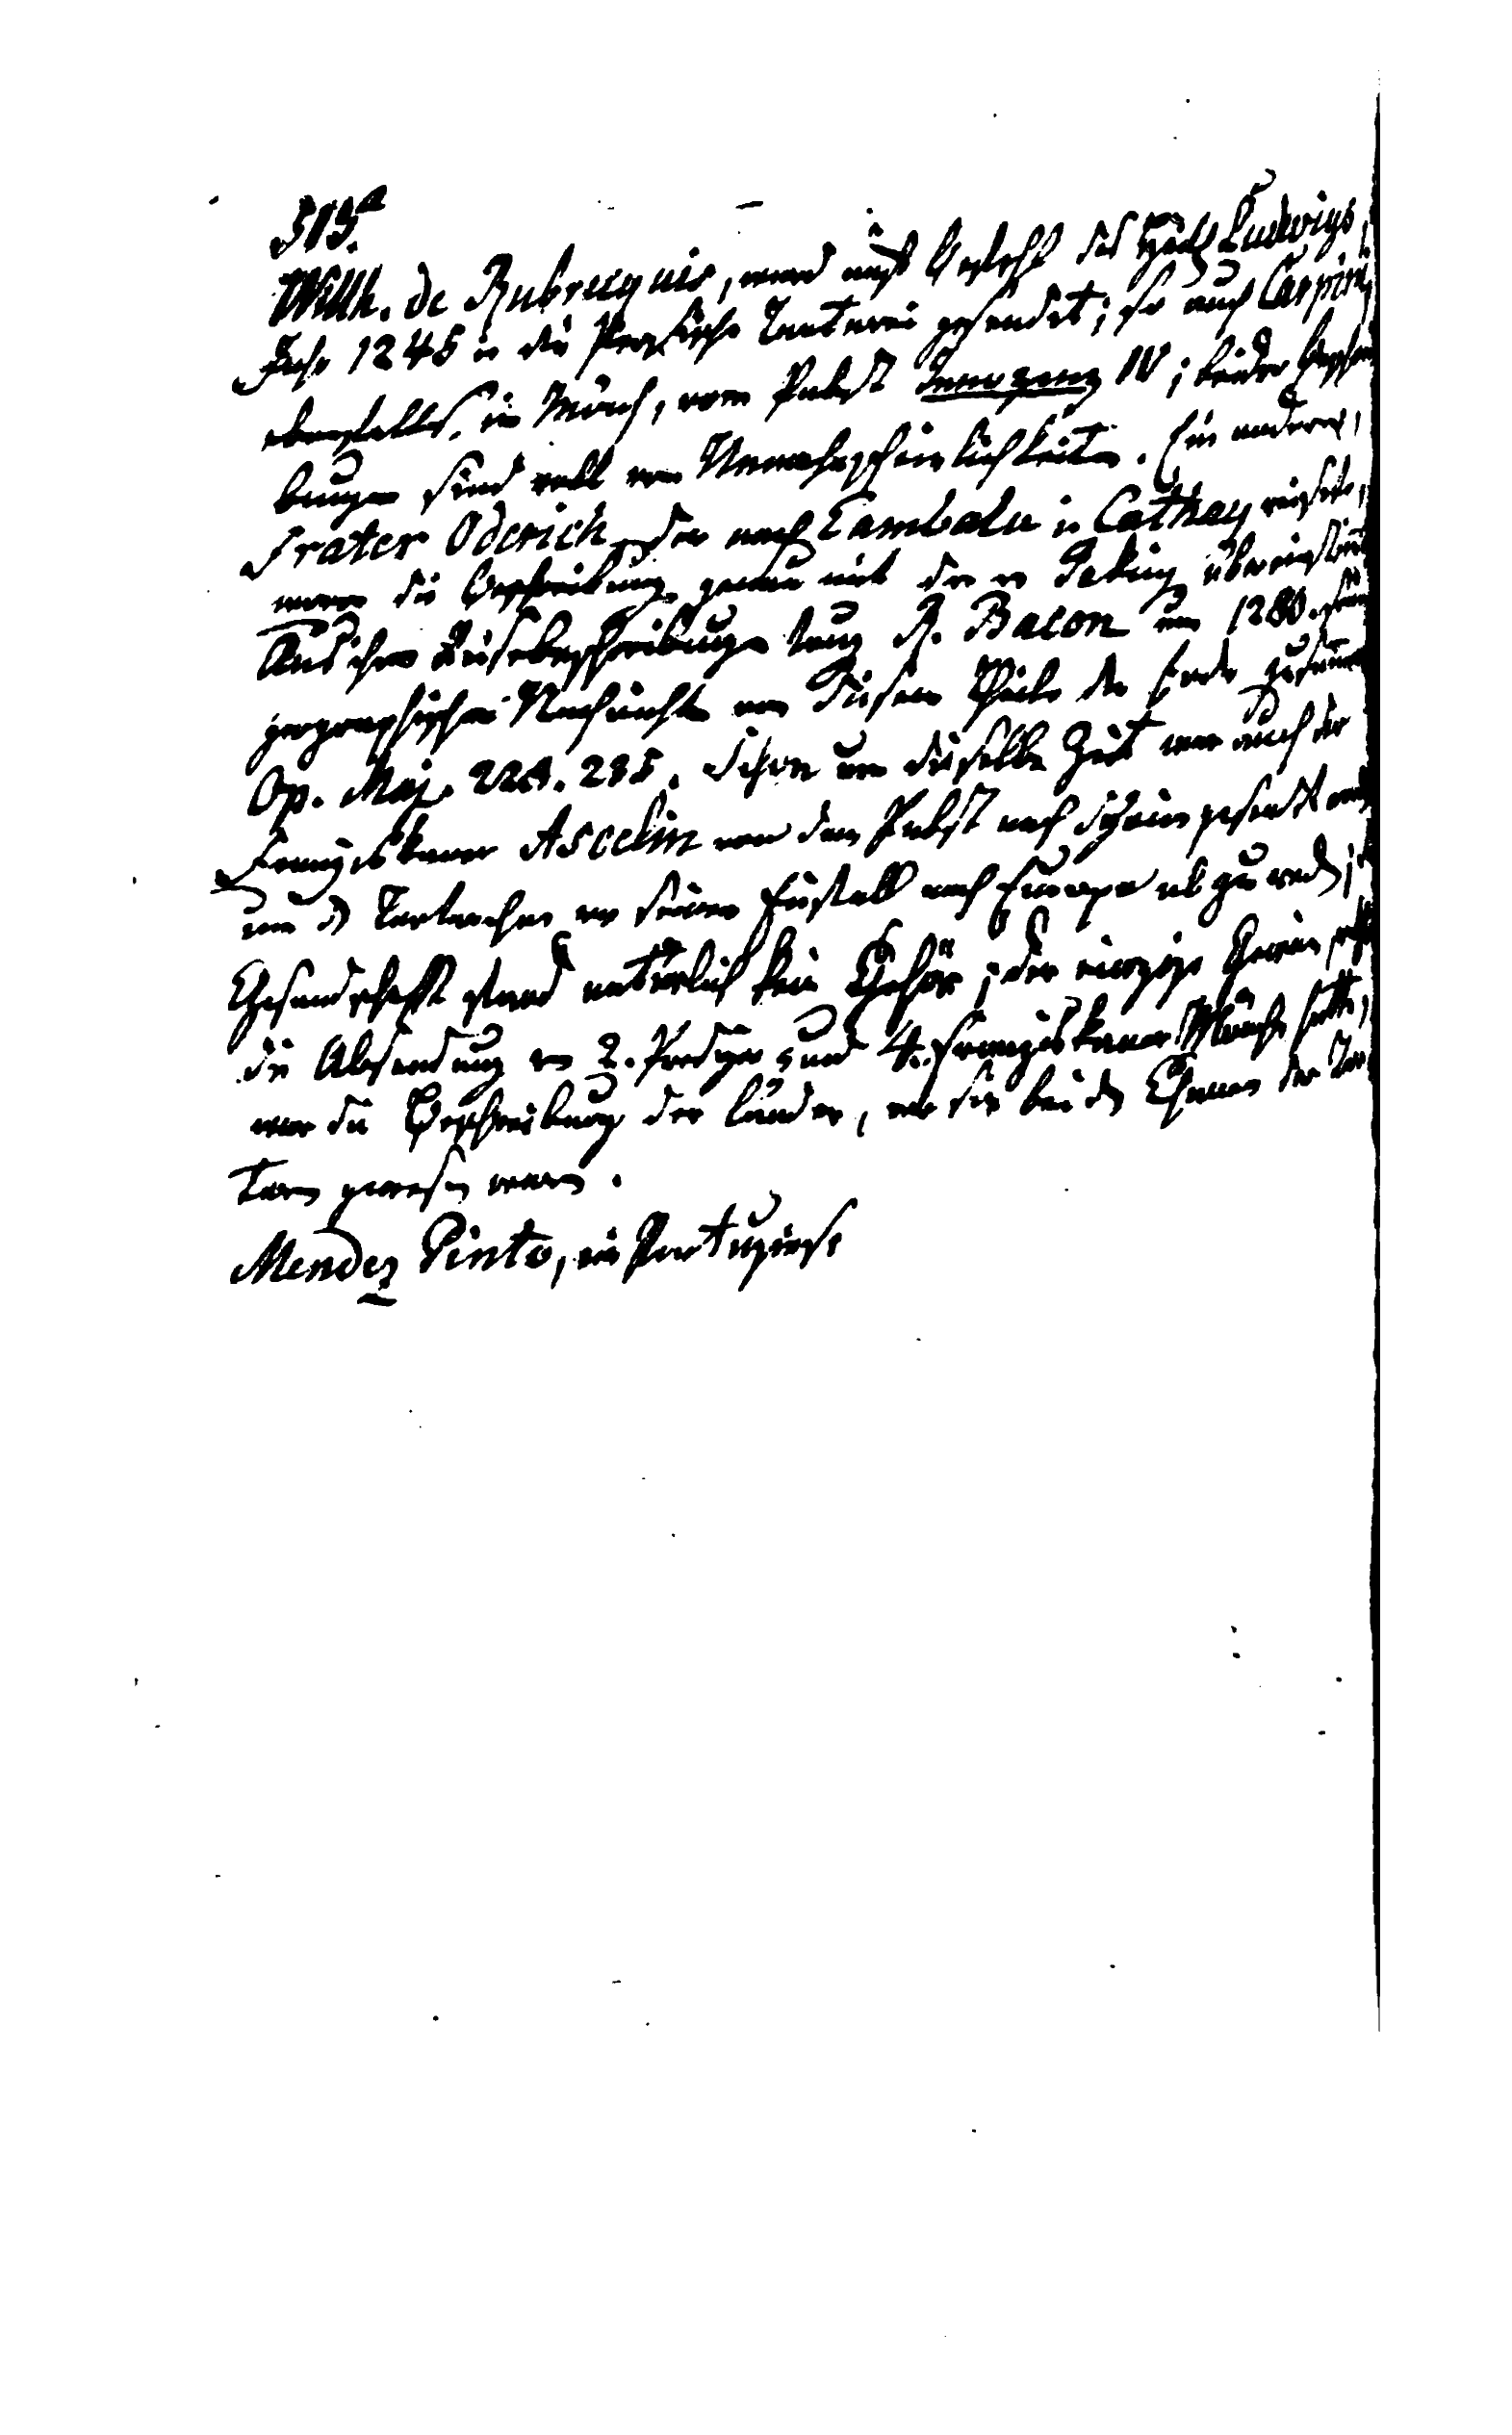 519.a
Willh. de Rubruquis, ward auf Befehl des Heil. Ludwigs,
Jahr 1245 in die Persische Tartarei gesendet; so auch Carpin,
ebenfalls ein Mönch, vom Pabst Innozenz IV; beider Beschrei
bungen sind voll von Unwahrscheinlichkeiten. Ein anderer,
Frater Oderich, der nach Cambalu in Cathay reisete,
wovon die Beschreibung genau mit der v Peking übereinstimt
Aus ihren Reisebeschreibungen trug R. Bacon um 1280. seine
geographischen Nachrichten von diesem Theile der Erde zusamen
Op. Maj. 224. 235. Schon um dieselbe Zeit war auch der
Franziskaner Ascelin von dem Pabst nach gesendt word
um d Tartarchan von seinem Einfall nach Europa abzurathen;
Gesandschaft fand natürlich kein Gehör; der einzige Gewin
die Absendung von 2. Prediger und 4. Franziskaner Mönche hatte,
war die Beschreibung der Länder, wo sie bei den Chanen der Tar
tarn gewesen waren.
Mendez Pinto, ein Portugiese